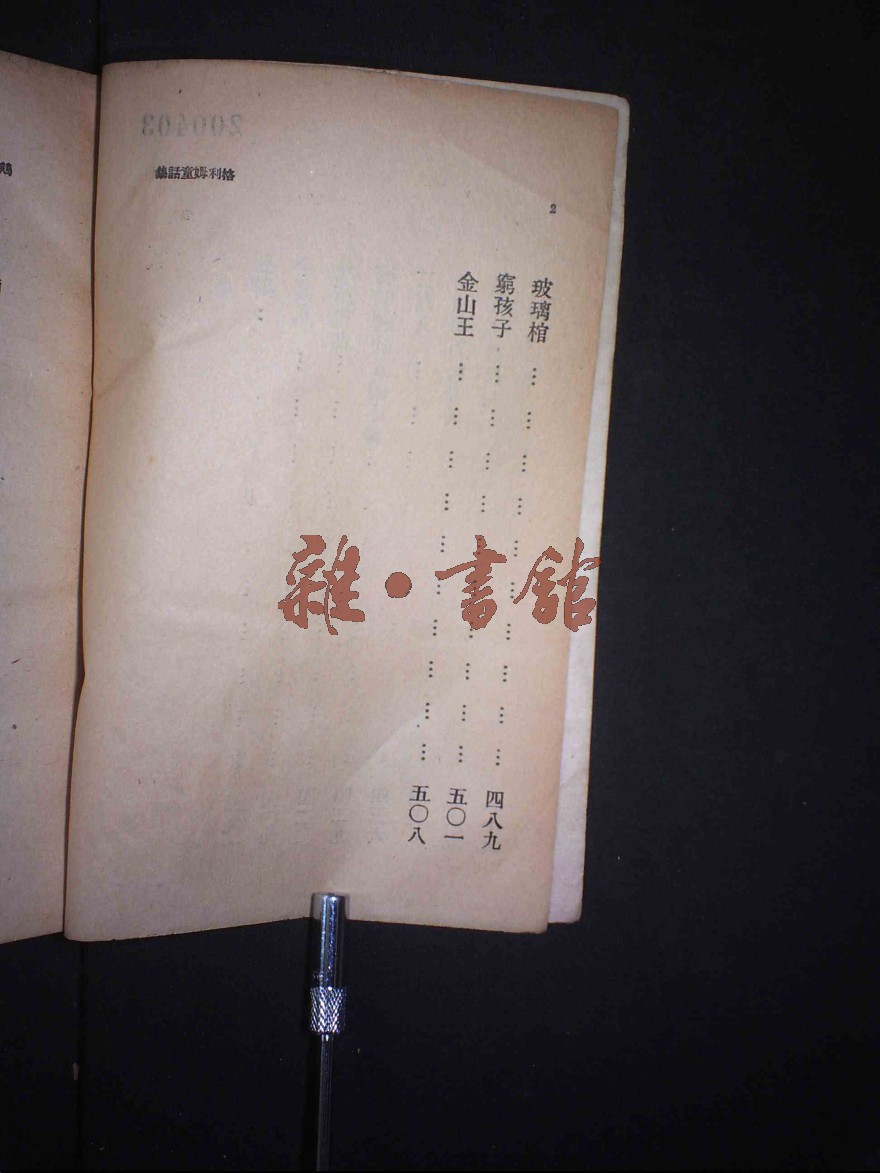 格利姆童話集
2
玻璃棺 … … … … … … … … … … 四八九
窮孩子 … … … … … … … … … … 五〇一
金山王 … … … … … … … … … … 五〇八
雜·書館
200403